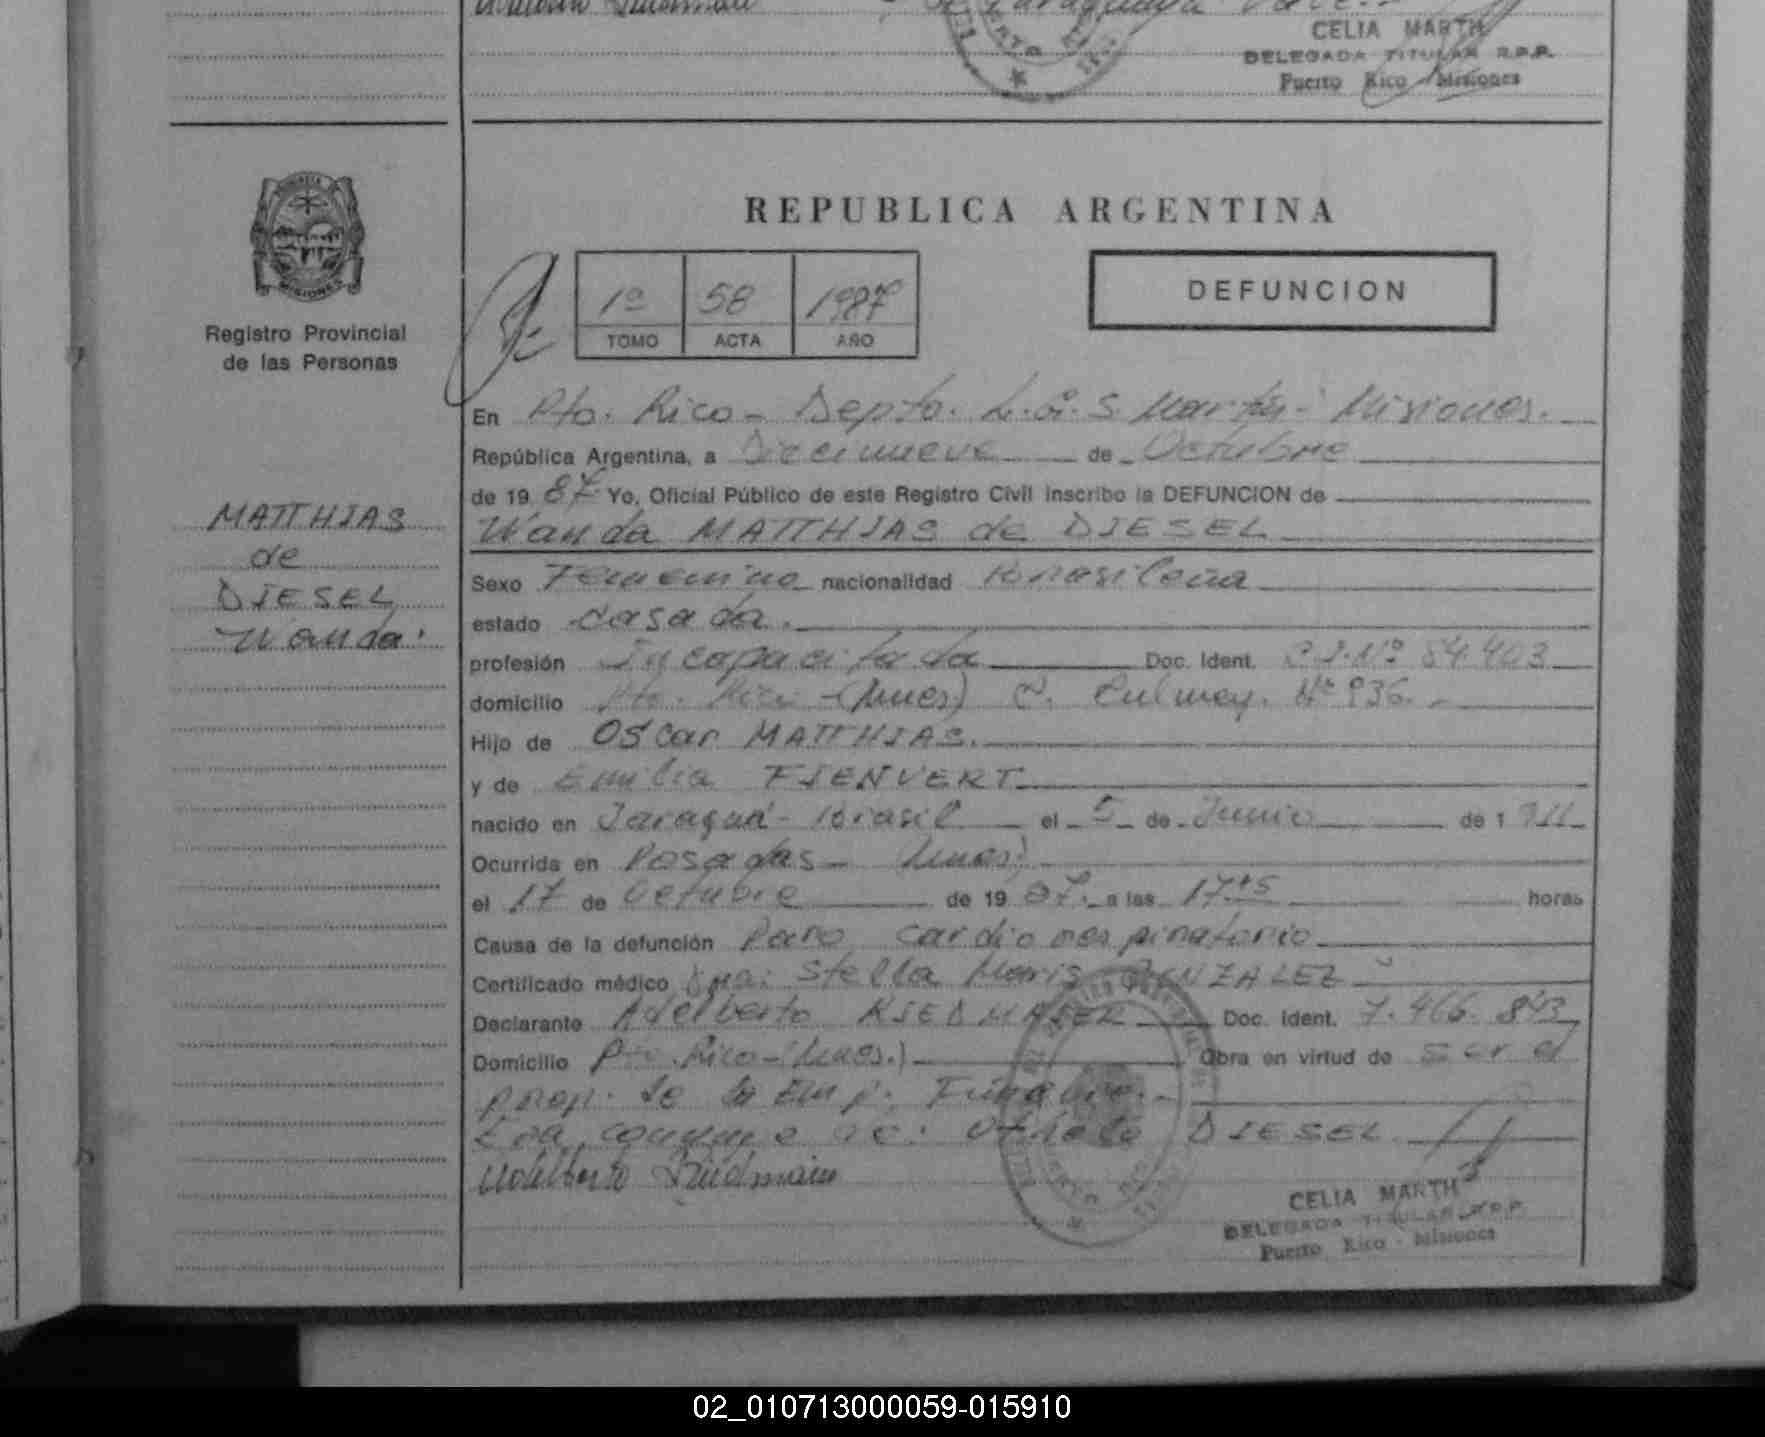 CELIA MARTH
DELEGADA TITULAR R.P.P.
Puerto Rico Misiones
REPUBLICA ARGENTINA
MISIONES
Registro Provincial
de las Personas
1º 58 1987
TOMO ACTA AÑO
DEFUNCION
En Pto. Rico - Depto. L.G.S. Martín - Misiones.
República Argentina, a Diecinueve de Octubre
de 1987 Yo, Oficial Público de este Registro Civil inscribo la DEFUNCION de
Wanda MATTHIAS de DIESEL
MATTHIAS
de
DIESEL
Wanda.
Sexo Femenino nacionalidad Brasileña
estado casada.
profesión Incapacitada Doc. Ident. C.I. Nº 84.403
domicilio Pto. Rico - (Mnes) C. Culmey. Nº 936.
Hijo de Oscar MATTHIAS.
y de Emilia FIENVERT.
nacido en Jaraguá - Brasil el 5 de Junio de 1911
Ocurrida en Posadas - (Mnes)
el 17 de Octubre de 1987. a las 17:45 horas
Causa de la defunción Paro cardiorespiratorio
Certificado médico Dra. Stella Maris GONZALEZ
Declarante Adelberto RIEDMAIER Doc. Ident. 7.466.843
Domicilio Pto. Rico - (Mnes.) Obra en virtud de ser el
prop. de la Emp. Fúnebre.
Era conyuge de: DIESEL
CELIA MARTH
DELEGADA TITULAR R.P.P.
Puerto Rico - Misiones
02_010713000059-015910